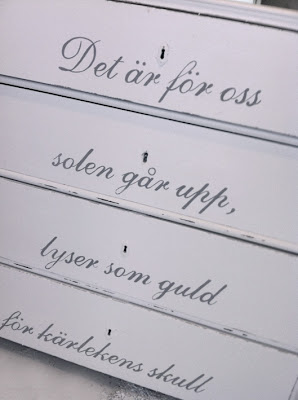 Det är för oss
solen går upp,
lyser som guld
för kärlekens skull